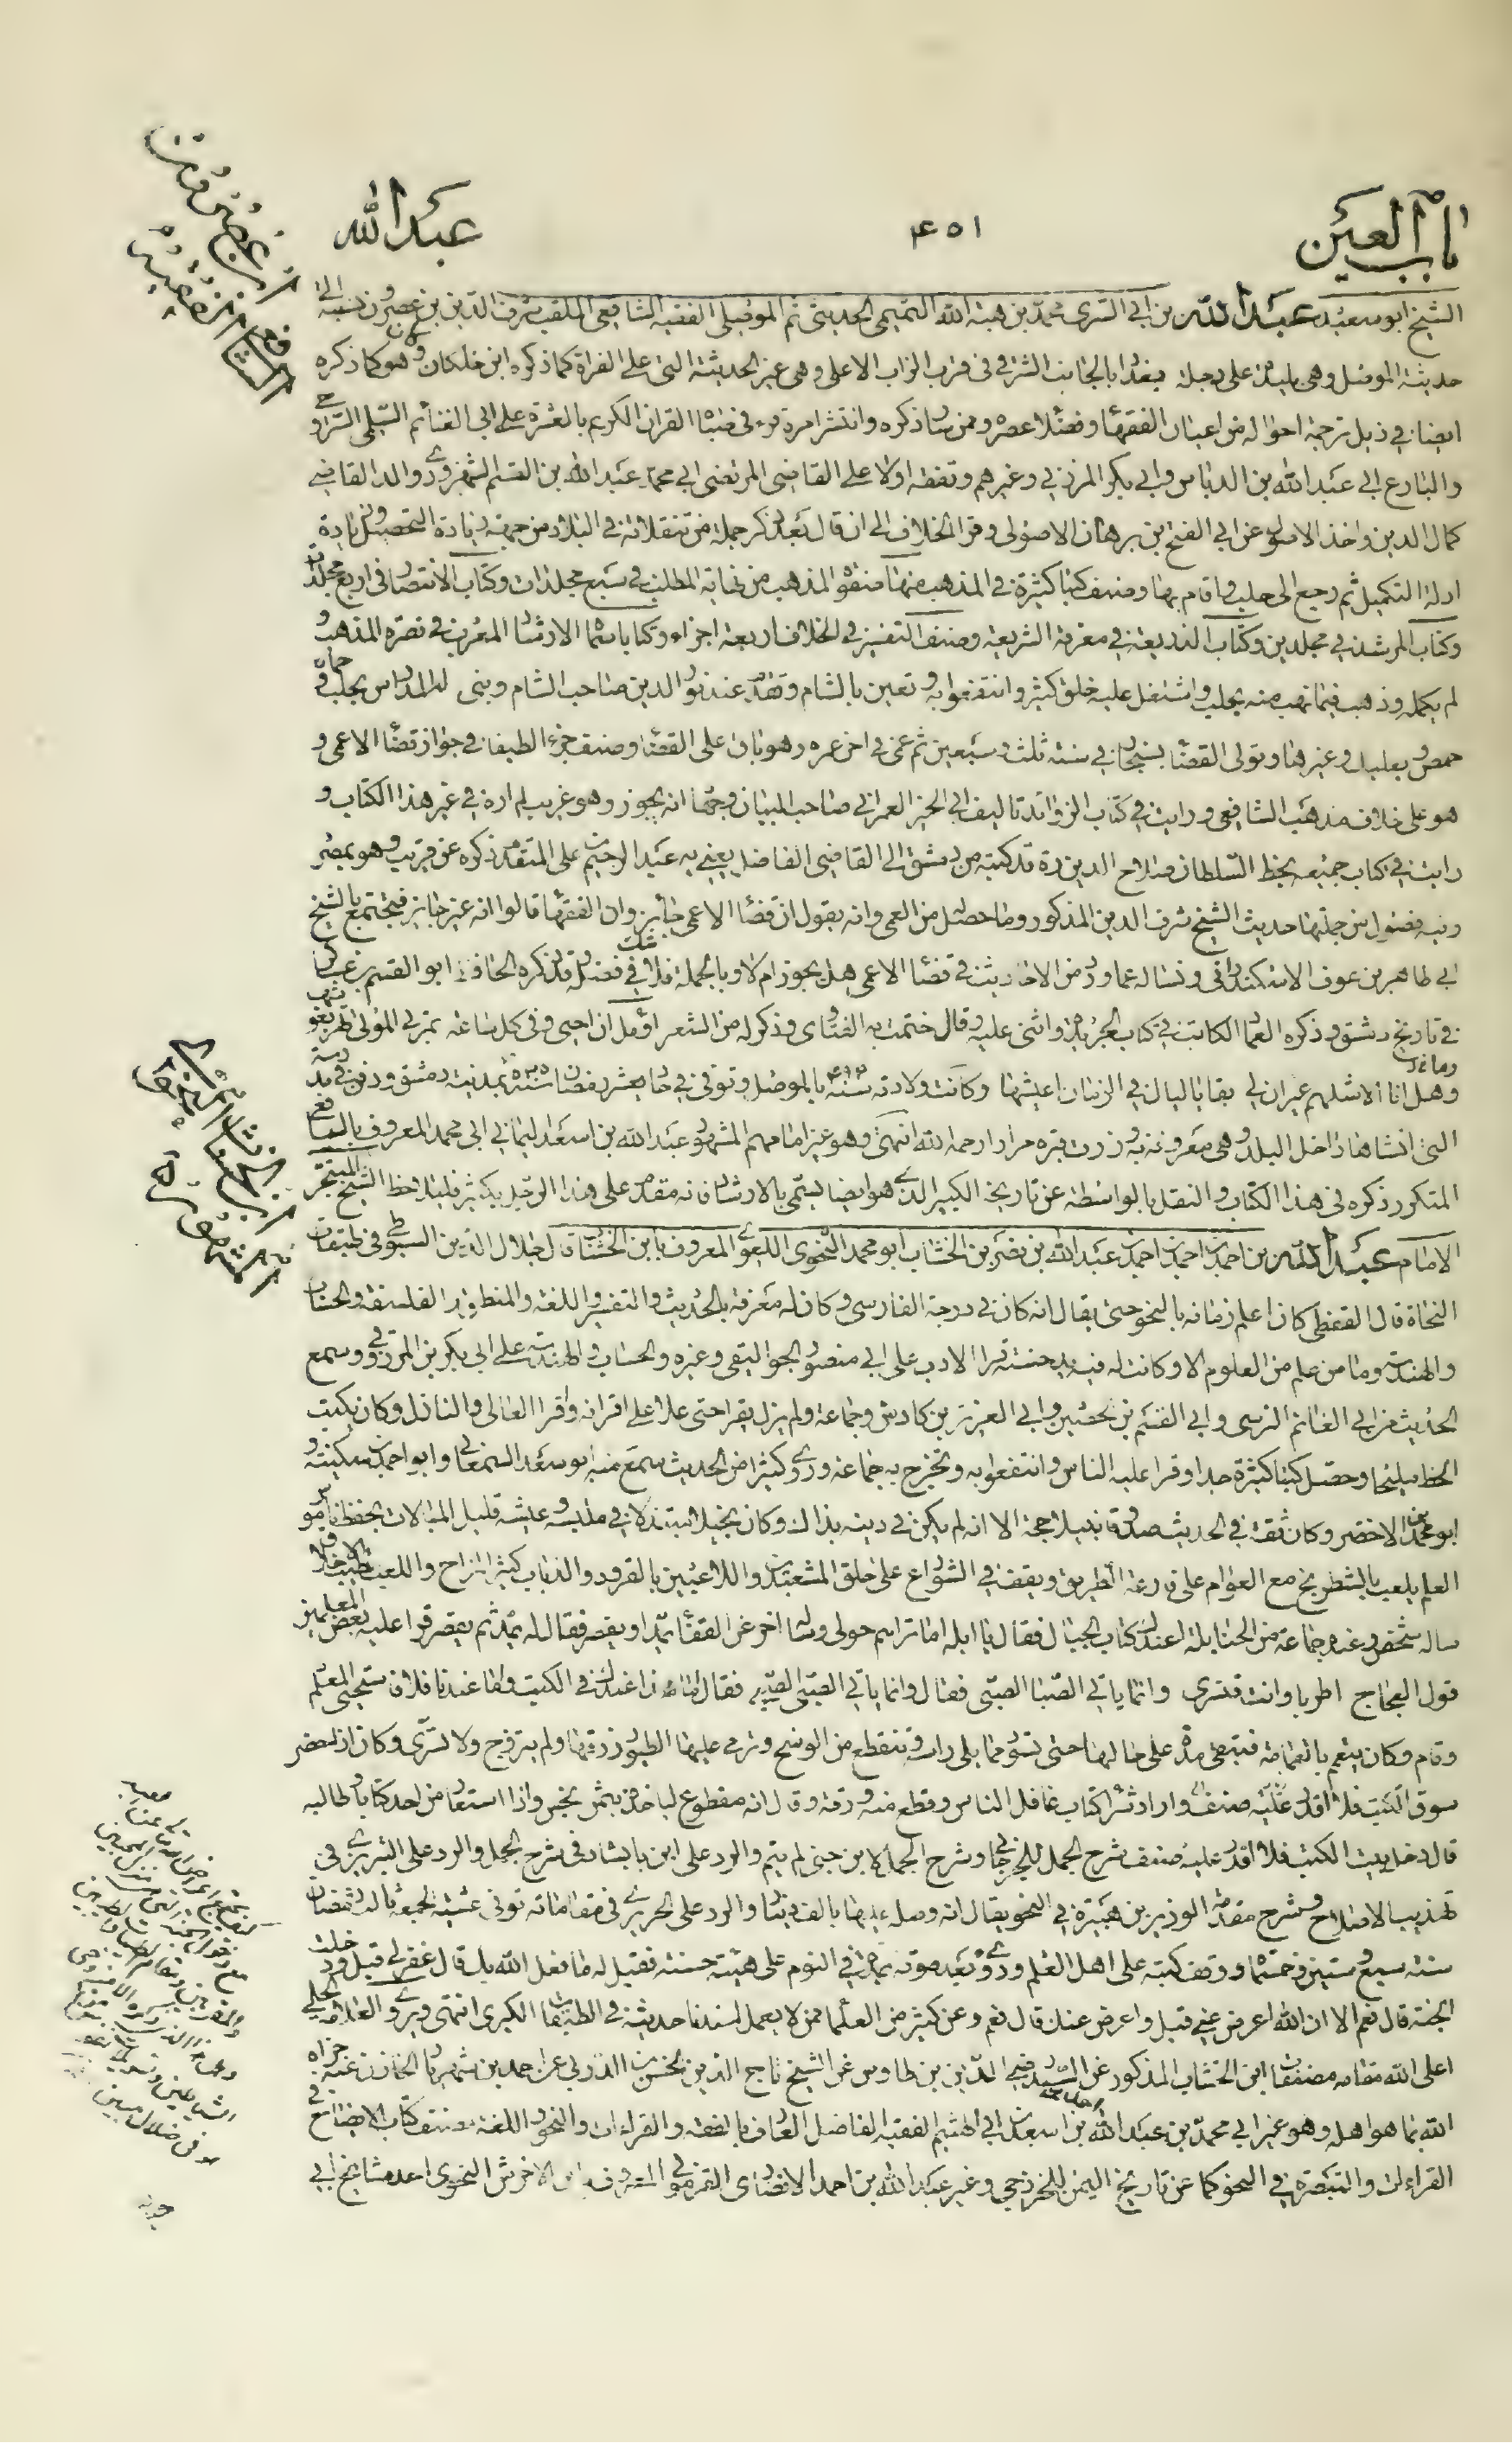 باب العين
٤٥١
عبد الله
الشيخ ابو سعيد عبد الله بن ابي السري محمد بن هبة الله التميمي الحديثي ثم الموصلي الفقيه الشافعي الملقب شرف الدين بن عصرون نسبة الى
حديثة الموصل وهي بليدة على دجلة بالجانب الشرقي في قرب الزاب الاعلى وهي غير الحديثة التي على الفراة كما ذكره ابن خلكان وهو كما ذكره
ايضا في ذيل ترجمة احواله من اعيان الفقهاء وفضلاء عصره وممن سار ذكره وانتشر امره قرء في صباه القران الكريم بالعشرة على ابي الغنائم السلمي السروجي
والبارع ابي عبد الله بن الدباس وابي بكر المزرفي وغيرهم وتفقه اولا على القاضي المرتضى ابي محمد عبد الله بن القسم الشهرزوري والد القاضي
كمال الدين واخذ الاصول عن ابي الفتح بن برهان الاصولي وقرا الخلاف الى ان قال بعد ذكر جملة من تنقلاته في البلاد من جهة زيادة التحصيل
ثم رجع الى حلب واقام بها وصنف كتبا كثيرة في المذهب منها صفوة المذهب من نهاية المطلب في سبع مجلدات وكتاب الانتصار في اربع مجلدات
وكتاب المرشد في مجلدين وكتاب الذريعة في معرفة الشريعة وصنف التفسير في الخلاف اربعة اجزاء وكتابا سماه الارشاد المغرب في نصرة المذهب و
لم يكمله وذهب فيما نهب منه بحلب واشتغل عليه خلق كثير وانتفعوا به وتعين بالشام وتقدم عند نور الدين صاحب الشام وبنى له المدارس بحلب وحماة و
حمص وبعلبك وغيرها وتولى القضاء بسنجار في سنة ثلث وسبعين ثم عمي في اخر عمره وهو باق على القضاء وصنف جزءا لطيفا في جواز قضاء الاعمى و
هو على خلاف مذهب الشافعي ورايت في كتاب الزوائد تاليف ابي الخير العمراني صاحب البيان وجها انه يجوز وهو غريب لم اره في غير هذا الكتاب و
رايت في كتاب جميعه بخط السلطان صلاح الدين ره قد كتبه من دمشق الى القاضي الفاضل يعني به عبد الرحيم بن علي المتقدم ذكره عن قريب وهو بمصر
وفيه فصول من جملتها حديث الشيخ شرف الدين المذكور وما حصل من العمى وانه يقول ان قضاء الاعمى جائز وان الفقهاء قالوا انه غير جايز فيجتمع بالشيخ
ابي طاهر بن عوف الاسكندراني وتساله عما ورد من الاحاديث في قضاء الاعمى هل يجوز ام لا وبالجملة فلا شك في فضله وقد ذكره الحافظ ابو القسم بن عساكر
في تاريخ دمشق وذكره العماد الكاتب في كتاب الخريدة واثنى عليه وقال ختمت به الفتاوى وذكر له من الشعر اؤمل ان احيى وفي كل ساعة تمر بي الموتى
وهل انا الا مثلهم غير ان لي بقايا ليال في الزمان اعيشها وكانت ولادته سنة بالموصل وتوفي في حادي عشر رمضان بمدينة دمشق ودفن في مدرسته
التي انشاها داخل البلد وهي معروفة به وزرت قبره مرارا رحمه الله انتهى وهو غير امامهم المشهور عبد الله بن اسعد اليماني ابي محمد المعروف باليافعي
المتكرر ذكره في هذا الكتاب والنقل بالواسطة عن تاريخه الكبير الذي هو ايضا يسمى بالارشاد فانه مقدم على هذا الرجل بكثير فليلاحظ
الشيخ المتبحر
الامام عبد الله بن احمد بن احمد بن احمد بن عبد الله بن نصر بن الخشاب ابو محمد النحوي اللغوي المعروف بابن الخشاب قال جلال الدين السيوطي في طبقات
النحاة قال القفطي كان اعلم زمانه بالنحو حتى يقال انه كان في درجة الفارسي وكان له معرفة بالحديث والتفسير واللغة والمنطق والفلسفة والحساب
والهندسة وما من علم من العلوم الا وكانت له فيه يد حسنة قرا الادب على ابي منصور الجواليقي وغيره والحساب والهندسة على ابي بكر بن المرزقي وسمع
الحديث من ابي الغنائم النرسي وابي القسم بن الحصين وابي العز بن كادش وجماعة ولم يزل يقرا حتى علا على اقرانه وقرا العالي والنازل وكان يكتب
الخط مليحا وحصل كتبا كثيرة جدا وقرا عليه الناس وانتفعوا به وتخرج به جماعة وروى كثيرا من الحديث سمع منه ابو سعد السمعاني وابو احمد بن سكينة و
ابو محمد بن الاخضر وكان ثقة في الحديث صدوقا نبيلا حجة الا انه لم يكن في دينه بذاك وكان بخيلا مبتذلا في ملبسه وعيشه قليل المبالاة بحفظ ناموس
العلم يلعب بالشطرنج مع العوام على قارعة الطريق ويقف في الشوارع على حلق المشعبذين واللاعبين بالقرود والدباب كثير المزاح واللعب طيب الاخلاق
ساله شخص وعنده جماعة من الحنابلة اعندك كتاب الجبال فقال يا ابله اما تراهم حولي وساله اخر عن القفا يمد او يقصر فقال له يمد ثم يقصر قرا عليه بعض المعلمين
قول العجاج اطربا وانت قنسري وانما ياتي الصبا الصبي فقال وانما ياتي الصبي الصبي فقال هذا عندك في الكتب واما عندنا فلا فاستحيى المعلم
وقام وكان يتعمم بالعمامة فتبقى مدة على حالها حتى تسود مما يلي راسه وتتقطع من الوسخ وترمي عليها الطيور زرقها ولم يتزوج ولا تسرى وكان اذا حضر
سوق الكتب واراد شراء كتاب غافل الناس وقطع منه ورقة وقال انه مقطوع لياخذه بثمن بخس واذا استعار من احد كتابا وطالبه
قال دخل بين الكتب فلا اقدر عليه صنف شرح الجمل للجرجاني وشرح اللمع لابن جني لم يتم والرد على ابن بابشاذ في شرح الجمل والرد على التبريزي في
تهذيب الاصلاح وشرح مقدمة الوزير بن هبيرة في النحو يقال انه وصله عليها بالف دينار والرد على الحريري في مقاماته توفي عشية الجمعة ثالث رمضان
سنة سبع وستين وخمسماة ووقف كتبه على اهل العلم وروي بعد موته بمدة في النوم على هيئة حسنة فقيل له ما فعل الله بك قال غفر لي قيل ودخلت
الجنة قال نعم الا ان الله اعرض عني قيل واعرض عنك قال نعم وعن كثير من العلماء ممن لا يعمل اسندنا حديثه في الطبقات الكبرى انتهى ويروي العلامة الحلي
اعلى الله مقامه مصنفات ابن الخشاب المذكور عن السيد رضي الدين بن طاوس عن الشيخ تاج الدين الحسن بن الدربي عن احمد بن شهريار الخازن عنه جزاه
الله بما هو اهله وهو غير ابي محمد بن عبد الله بن اسعد بن ابي الهثيم الفقيه الفاضل العارف بالفقه والقراءات والنحو واللغة مصنف كتاب الايضاح في
القراءات والتبصرة في النحو كما عن تاريخ اليمن للخزرجي وغير عبد الله بن احمد الانصاري القرموني المعروف بابن الاخرش النحوي احد مشايخ ابي